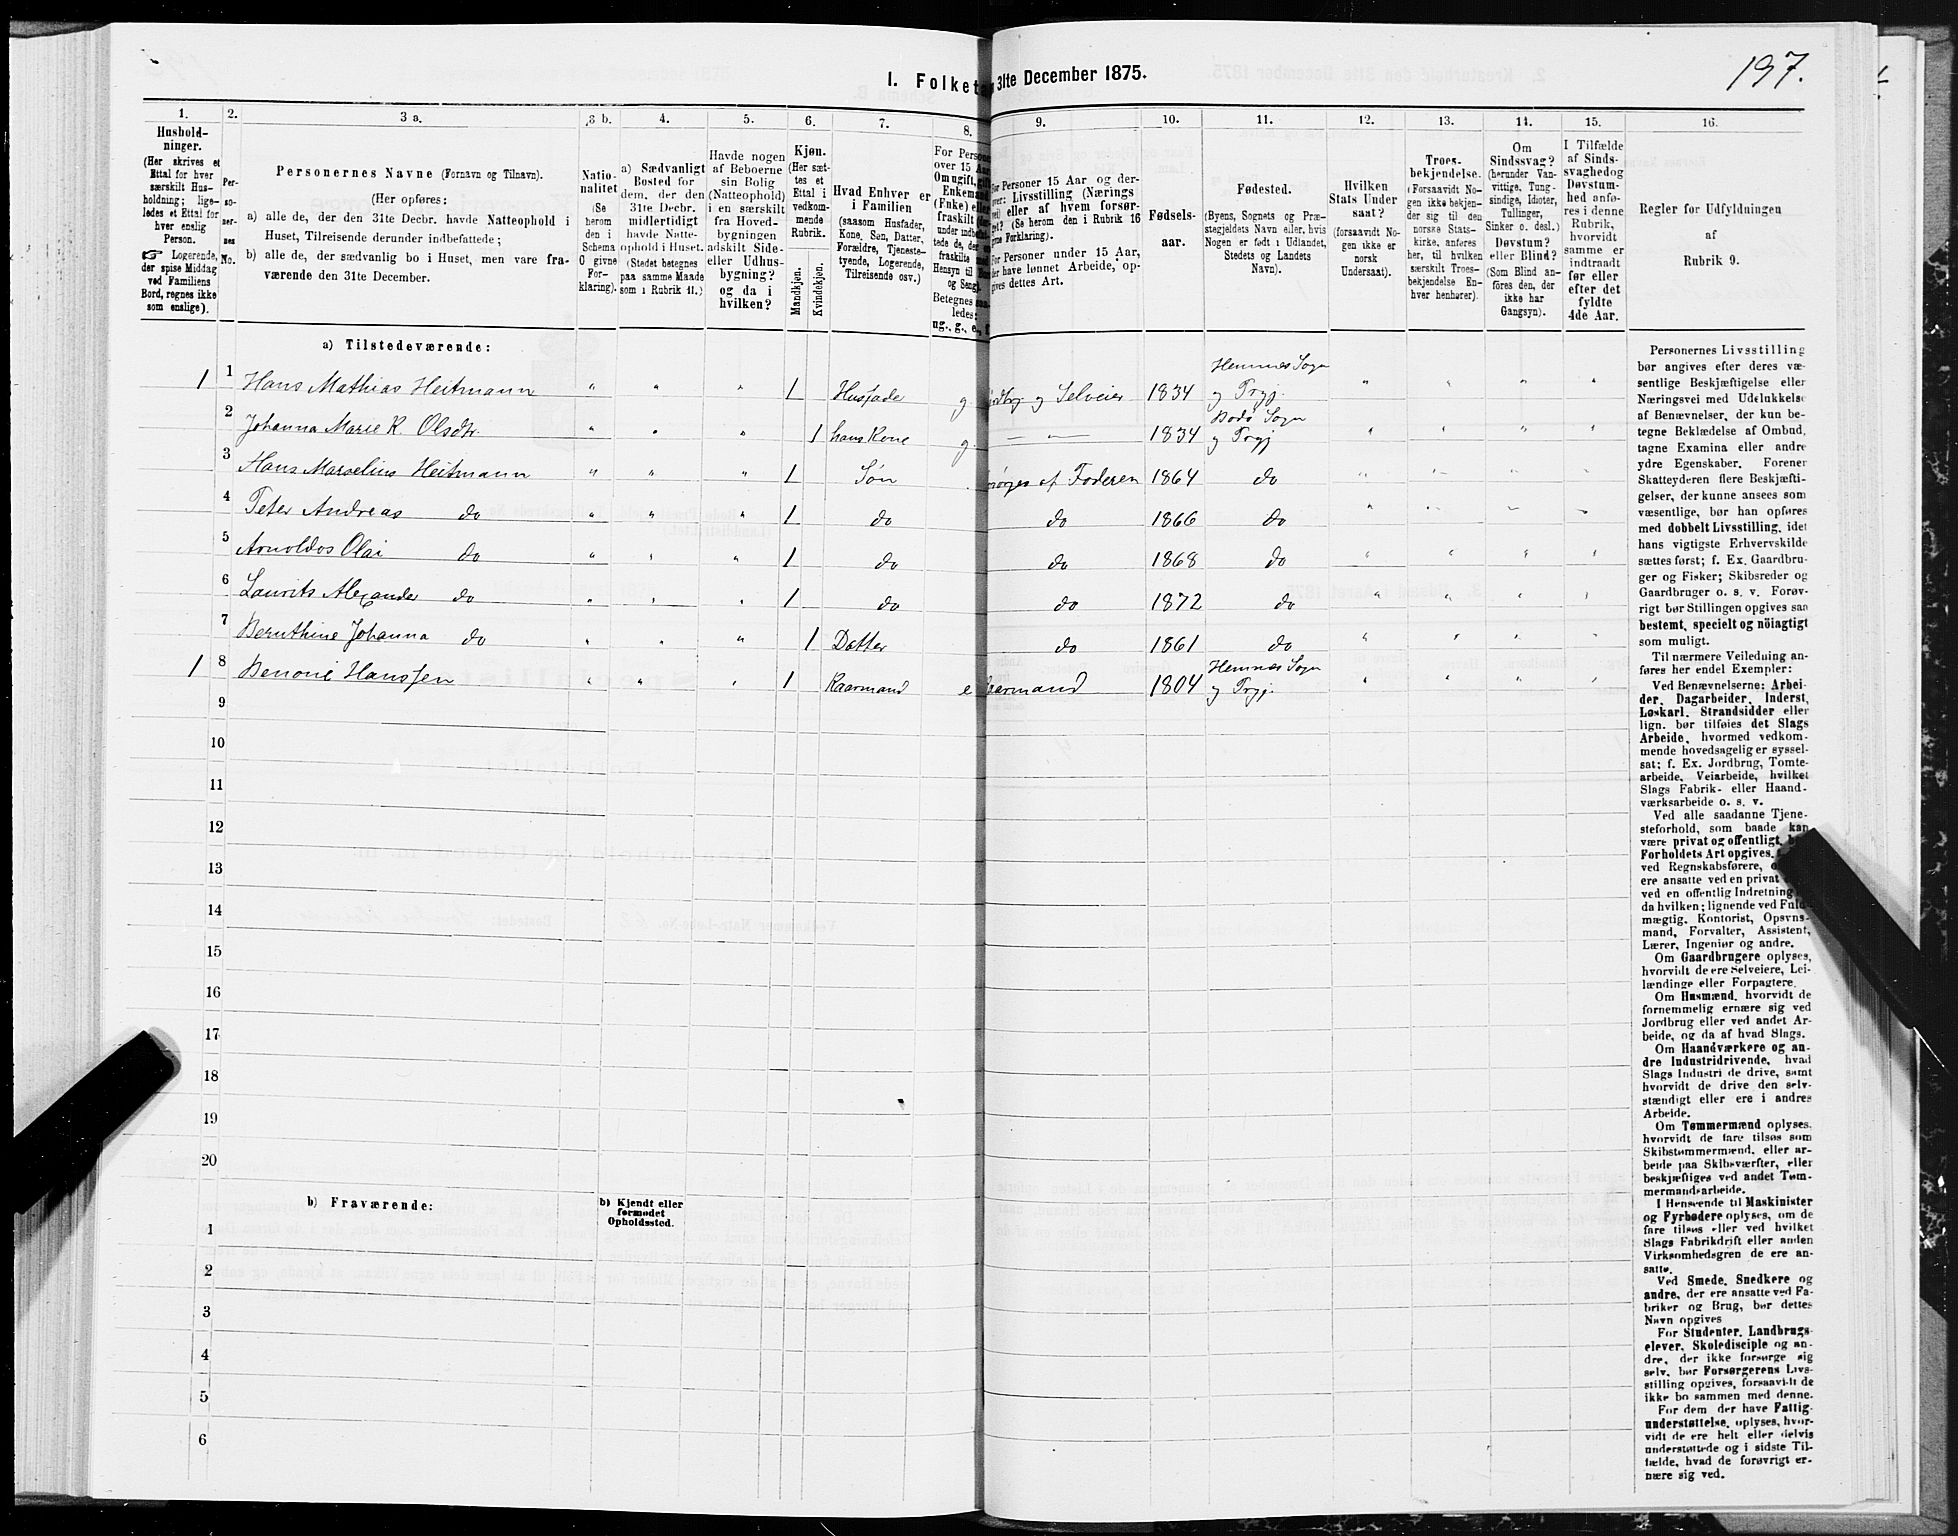 197.
I. Folketæ 31te December 1875.
1. 2. 3 a. 3 b. 4. 5. 6. 7. 8. 9. 10. 11. 12. 13. 14. 15. 16.
Hushold-
ninger.
(Her skrives et
Ettal for hver
særskilt Hus-
holdning; lige-
ledes et Ettal for
hver enslig
Person.
☞ Logerende,
der spise Middag
ved Familiens
Bord, regnes ikke
som enslige).
Per-
so-
ner-
nes
No.
Personernes Navne (Fornavn og Tilnavn).
(Her opføres:
a) alle de, der den 31te Decbr. havde Natteophold i
Huset, Tilreisende derunder indbefattede;
b) alle de, der sædvanlig bo i Huset, men vare fra-
værende den 31te December.
Natio-
nalitet
(Se
herom
den i
Schema
O givne
For-
klaring).
a) Sædvanligt
Bosted for
dem, der den
31te Decbr.
midlertidigt
havde Natte-
ophold i Huset.
(Stedet betegnes
paa samme Maade
som i Rubrik 11.)
Havde nogen
af Beboerne
sin Bolig
(Natteophold)
i en særskilt
fra Hoved-
bygningen
adskilt Side-
eller Udhus-
bygning?
og da i
hvilken?
Kjøn.
(Her sæt-
tes et
Ettal i
vedkom-
mende
Rubrik.
Mandkjøn.
Kvindekjøn.
Hvad Enhver er
i Familien
(saasom Husfader,
Kone, Søn, Datter,
Forældre, Tjeneste-
tyende, Logerende,
Tilreisende osv.)
For Personer
over 15 Aar
Om ugift, gift,
Enkemand
(Enke) eller
fraskilt
under indbef
tede de, der
fraskilte med
Hensyn til Bord
og Seng).
Betegnes saa-
ledes:
ug., g., e., f.
For Personer 15 Aar og der-
over: Livsstilling (Nærings
vei) eller af hvem forsør-
get? (Se herom den i Rubrik 16
gne Forklaring).
For Personer under 15 Aar,
der have lønnet Arbeide, op-
gives dettes Art.
Fødsels-
aar.
Fødested.
(Byens, Sognets og Præ-
stegjeldets Navn eller, hvis
Nogen er født i Udlandet,
Stedets og Landets
Navn).
Hvilken
Stats Under
saat?
(forsaavidt No-
gen ikke er
norsk
Undersaat).
Troes-
bekjendelse.
(Forsaavidt No-
gen ikke bekjen-
der sig til den
norske Stats-
kirke, anføres
her, til hvilken
særskilt Troes-
bekjendelse En-
hver henhører).
Om
Sindssvag?
(herunder Van-
vittige, Tung-
sindige, Idioter,
Tullinger,
Sinker o. desl.)
Døvstum?
eller Blind?
(Som Blind an-
føres den, der
ikke har
Gangsyn).
I Tilfælde
af Sinds-
svaghed og
Døvstum-
hed anfø-
res i denne
Rubrik,
hvorvidt
samme er
indtraadt
før eller
efter det
fyldte
4de Aar.
Regler for Udfyldningen
af
Rubrik 9.
a) Tilstedeværende:
1 1 Hans Mathias Heitmann " " " 1 Husfader g. Jordbr. og Selveier 1834 Hemnes Sogn og Prgj. " " " "
2 Johanna Marie K. Olsdtr. " " " 1 hans Kone g — " — 1834 Bodø Sogn og Prgj " " " "
3 Hans Marselius Heitmann " " " 1 Søn sørges af Faderen 1864 do " " " "
4 Peter Andreas do " " " 1 do do 1866 do " " " "
5 Arnoldos Olai do " " " 1 do do 1868 do " " " "
6 Laurits Alexander do " " " 1 do do 1872 do " " " "
7 Bernthine Johanna do " " " 1 Datter do 1861 do " " " "
1 8 Benoni Hanssen " " " 1 Kaarmand e Kaarmand 1804 Hemnes Sogn og Prgj. " " " "
9
10
11
12
13
14
15
16
17
18
19
20
b) Fraværende:
b) Kjendt eller
formodet
Opholdssted.
1
2
3
4
5
6
Personernes Livsstilling
bør angives efter deres væ-
sentlige Beskjæftigelse eller
Næringsvei med Udelukkelse
af Benævnelser, der kun be-
tegne Beklædelse af Ombud,
tagne Examina eller andre
ydre Egenskaber. Forener
Skatteyderen flere Beskjæfti-
gelser, der kunne ansees som
væsentlige, bør han opføres
med dobbelt Livsstilling, idet
hans vigtigste Erhvervskilde
sættes først; f. Ex. Gaardbru-
ger og Fisker; Skibsreder og
Gaardbruger o. s. v. Forøv-
rigt bør Stillingen opgives saa
bestemt, specielt og nöiagtigt
som muligt.
Til nærmere Veiledning an-
føres her endel Exempler:
Ved Benævnelserne: Arbei-
der, Dagarbeider, Inderst,
Løskarl, Strandsidder eller
lign. bør tilføies det Slags
Arbeide, hvormed vedkom-
mende hovedsagelig er syssel-
sat; f. Ex. Jordbrug, Tomte-
arbeide, Veiarbeide, hvilket
Slags Fabrik- eller Haand-
værksarbeide o. s. v.
Ved alle saadanne Tjene-
steforhold, som baade kan
være privat og offentligt, bør
Forholdets Art opgives,
ved Regnskabsførere,
ere ansatte ved en privat
ved en offentlig Indretning
da hvilken; lignende ved Fuld-
mægtig, Kontorist, Opsyns-
mand, Forvalter, Assistent,
Lærer, Ingeniør og andre.
Om Gaardbrugere oplyses,
hvorvidt de ere Selveiere, Lei-
lændinge eller Forpagtere.
Om Husmænd, hvorvidt de
fornemmelig ernære sig ved
Jordbrug eller ved andet Ar-
beide, og da af hvad Slags.
Om Haandværkere og an-
dre Industridrivende, hvad
Slags Industri de drive, samt
hvorvidt de drive den selv-
stændigt eller ere i andres
Arbeide.
Om Tømmermænd oplyses,
hvorvidt de fare tilsøs som
Skibstømmermænd, eller ar-
beide paa Skibsværfter, eller
beskjæftiges ved andet Tøm-
mermandsarbeide.
I Henseende til Maskinister
og Fyrbødere oplyses, om de
fare tilsøs eller ved hvilket
Slags Fabrikdrift eller anden
Virksomhedsgren de ere an-
satte.
Ved Smede, Snedkere og
andre, der ere ansatte ved Fa-
briker og Brug, bør dettes
Navn opgives
For Studenter, Landbrugs-
elever, Skoledisciple og an-
dre, der ikke forsørge sig
selv, bør Forsørgerens Livs-
stilling opgives, forsaavidt de
ikke bo sammen med denne.
For dem, der have Fattig-
understøttelse, oplyses, hvor-
vidt de ere helt eller delvis
understøttede og i sidste Til-
fælde, hvad de forøvrigt er-
nære sig ved.